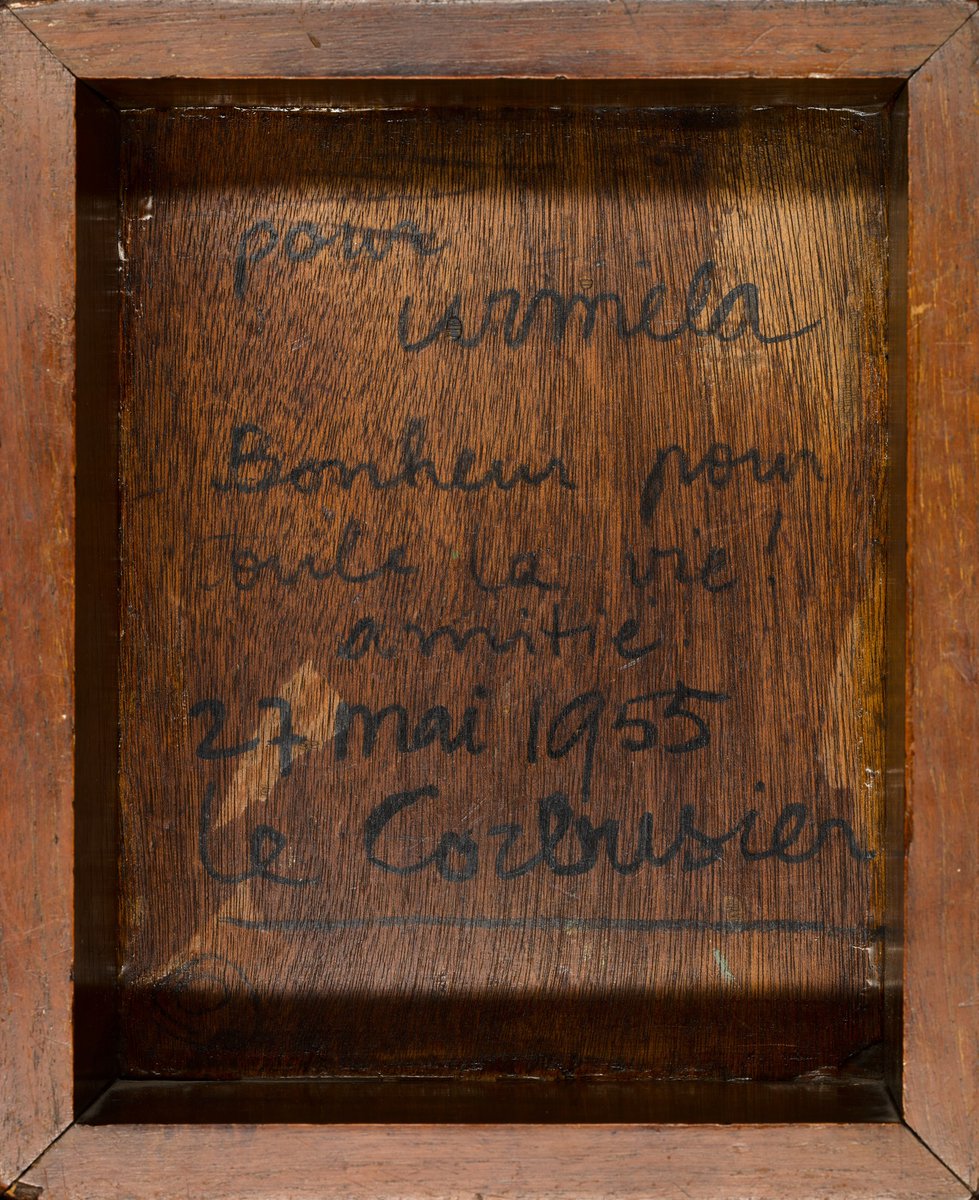 pour
urmila
Bonheur pour
toute la vie !
amitié.
27 mai 1955
Le Corbusier